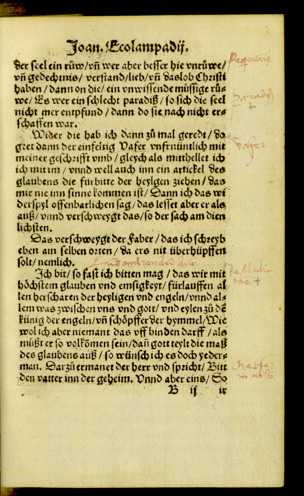 Joan. Ecolampadij.
der seel ein rüw/ vñ wer aber besser hie vnrüwe/
vñ gedechtnis/ verstand/ lieb/ vñ das lob Christi
haben/ dann on die/ ein vnwissende müssige rü-
we/ Es wer ein schlecht paradiß/ so sich die seel
nicht mer entpfund/ dann do sie nach nicht er-
schaffen war.
Wider die hab ich dann zů mal geredt/ da
gret dann der einfeltig Vafer vnfrüntlich mit
meiner geschrifft vmb/ gleych als mitthellet ich
ich mit im/ vnnd well auch inn ein artickel des
glaubens die fürbitte der heylgen ziehen/ das
mir nie inn sinne kommen ist/ Dann ich das wi
derspyl offenbarlichen sag/ das lesset aber er als
auß/ vnnd verschweygt das/ so der sach am dien
lichsten.
Das verschweygt der Faber/ das ich schreyb
eben am selben orten/ da ers nit überhüpffen
solt/ nemlich.
Ich bit/ so fast ich bitten mag/ das wir mit
höchstem glauben vnd emsigkeyt/ fürlauffen al
len herscharen der heyligen vnd engeln/ vnnd al-
lem was zwischen vns vnd got/ vnd eylen zů dẽ
künig der engeln/ vñ schöpffer der hymmel/ We
wol ich aber niemant das vff binden darff/ als
müßt er so volkõmen sein/ dañ gott teylt die maß
des glaubens auß/ so wünsch ich es doch yeder-
man. Darzů ermanet der herr vnd spricht/ Bitt
den vatter inn der geheim. Vnnd aber eins/ So
B ij ir